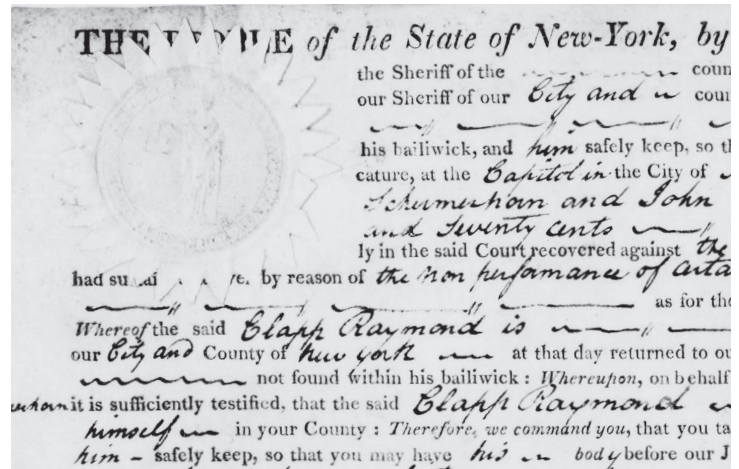 THE PEOPLE of the State of New-York, by
the Sheriff of the coun
our Sheriff of our City and coun
his bailiwick, and him safely keep, so th
cature, at the Capitol in the City of
Schermerhorn and John
and Seventy cents
ly in the said Court recovered against the
had by reason of the non performance of certa
as for the
Whereof the said Clapp Raymond is
our City and County of New york at that day returned to ou
not found within his bailiwick : Whereupon, on behalf
it is sufficiently testified, that the said Clapp Raymond
himself in your County : Therefore, we command you, that you ta
him – safely keep, so that you may have his body before our J